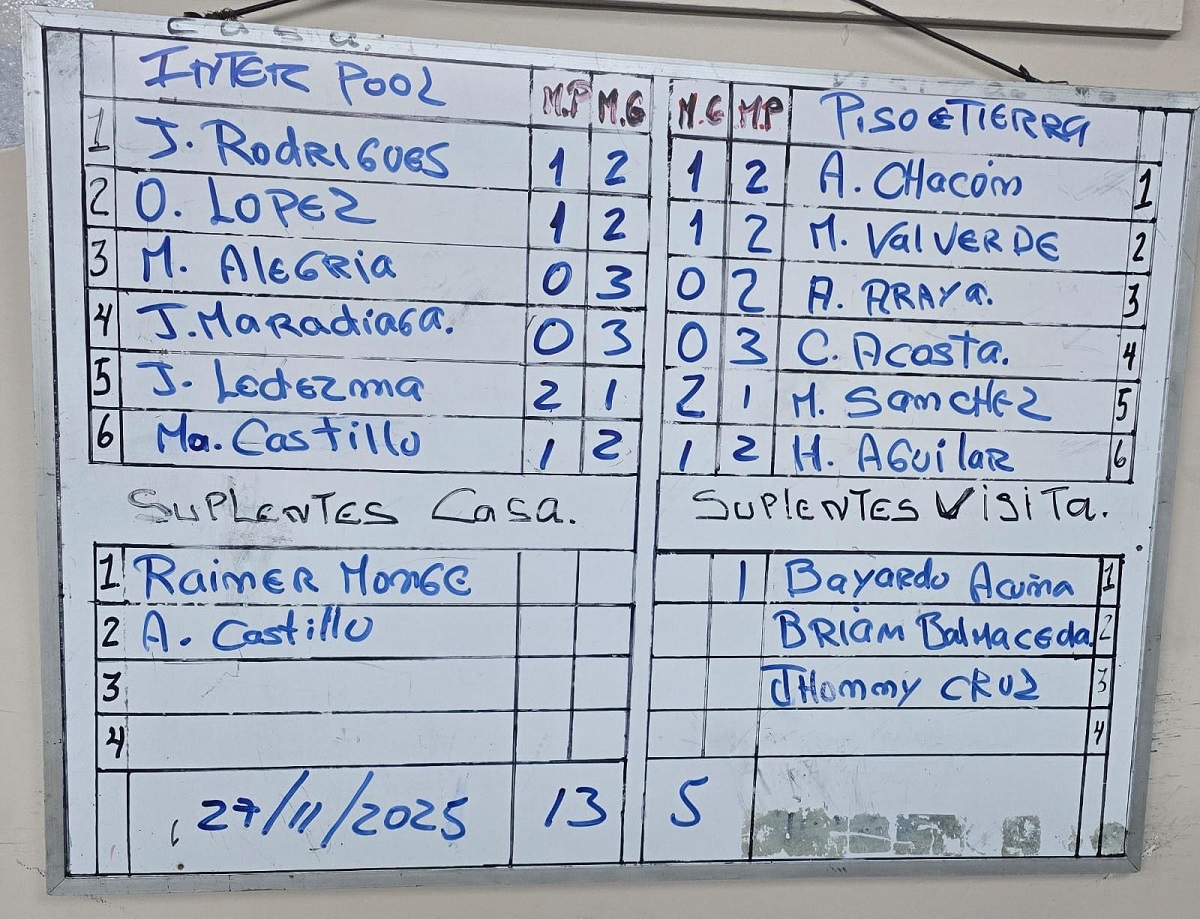 Casa.
INTER POOL M.P M.G M.G M.P PISO E TIERRA
1 J. RODRIGUES 1 2 1 2 A. CHACÓN 1
2 O. LOPEZ 1 2 1 2 M. VALVERDE 2
3 M. ALEGRIA 0 3 0 2 A. ARAYA. 3
4 J. MARADIAGA. 0 3 0 3 C. ACOSTA. 4
5 J. LEDEZMA 2 1 2 1 M. SANCHEZ 5
6 Ma. Castillo 1 2 1 2 H. AGUILAR 6
SUPLENTES Casa. SUPLENTES VISITA.
1 Raimer Monge 1 Bayardo Acuña 1
2 A. Castillo BRIAM BALMACEDA. 2
3 JHOMMY CRUZ 3
4 4
27/11/2025 13 5